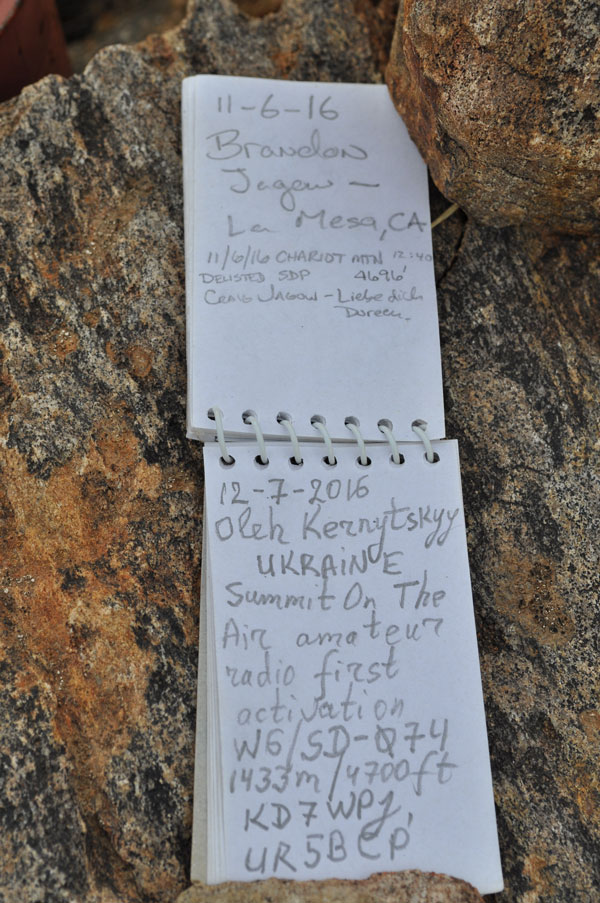 11-6-16
Brandon
Jagow —
La Mesa, CA
11/6/16 CHARIOT MTN 12:40
DELISTED SDP 4696'
CRAIG JAGOW - Liebe dich
Doreen.
12-7-2016
Oleh Kernytskyy
UKRAINE
Summit On The
Air amateur
radio first
activation
W6/SD-074
1433m/4700ft
KD7WPJ,
UR5BCP